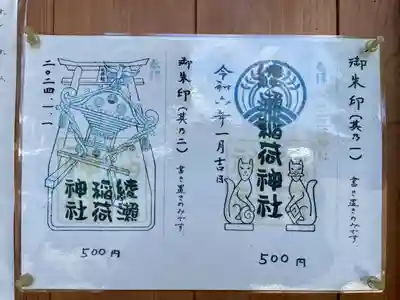 御朱印(其乃一)
書き置きのみです
綾瀬稲荷神社
令和六年一月吉日
500円
御朱印(其乃二)
書き置きのみです
二〇二四.一.一
綾瀬
稲荷
神社
500円